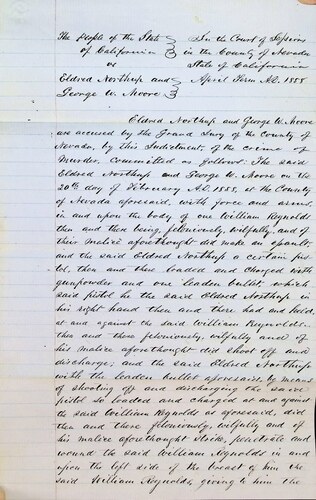 The People of the State } In the Court of Sessions
of California } in the County of Nevada
vs } State of California
Eldred Northup and } April Term A.D. 1858
George W. Moore }
Eldred Northup and George W. Moore
are accused by the Grand Jury of the County of
Nevada, by this Indictment, of the crime of
Murder, committed as follows. The said
Eldred Northup and George W. Moore on the
20th day of February A.D. 1858, at the County
of Nevada aforesaid, with force and arms,
in and upon the body of one William Reynolds
then and there being, feloniously, wilfully, and of
their malice aforethought did make an assault,
and the said Eldred Northup a certain pis-
tol, then and there loaded and charged with
gunpowder and one leaden bullet, which
said pistol he the said Eldred Northup in
his right hand then and there had and held,
at and against the said William Reynolds,
then and there feloniously, wilfully and of
his malice aforethought did shoot off and
discharge, and the said Eldred Northup
with the leaden bullet aforesaid, by means
of shooting off and discharging the said
pistol so loaded and charged at and against
the said William Reynolds as aforesaid, did
then and there feloniously, wilfully and of
his malice aforethought strike, penetrate and
wound the said William Reynolds in and
upon the left side of the breast of him the
said William Reynolds, giving to him the